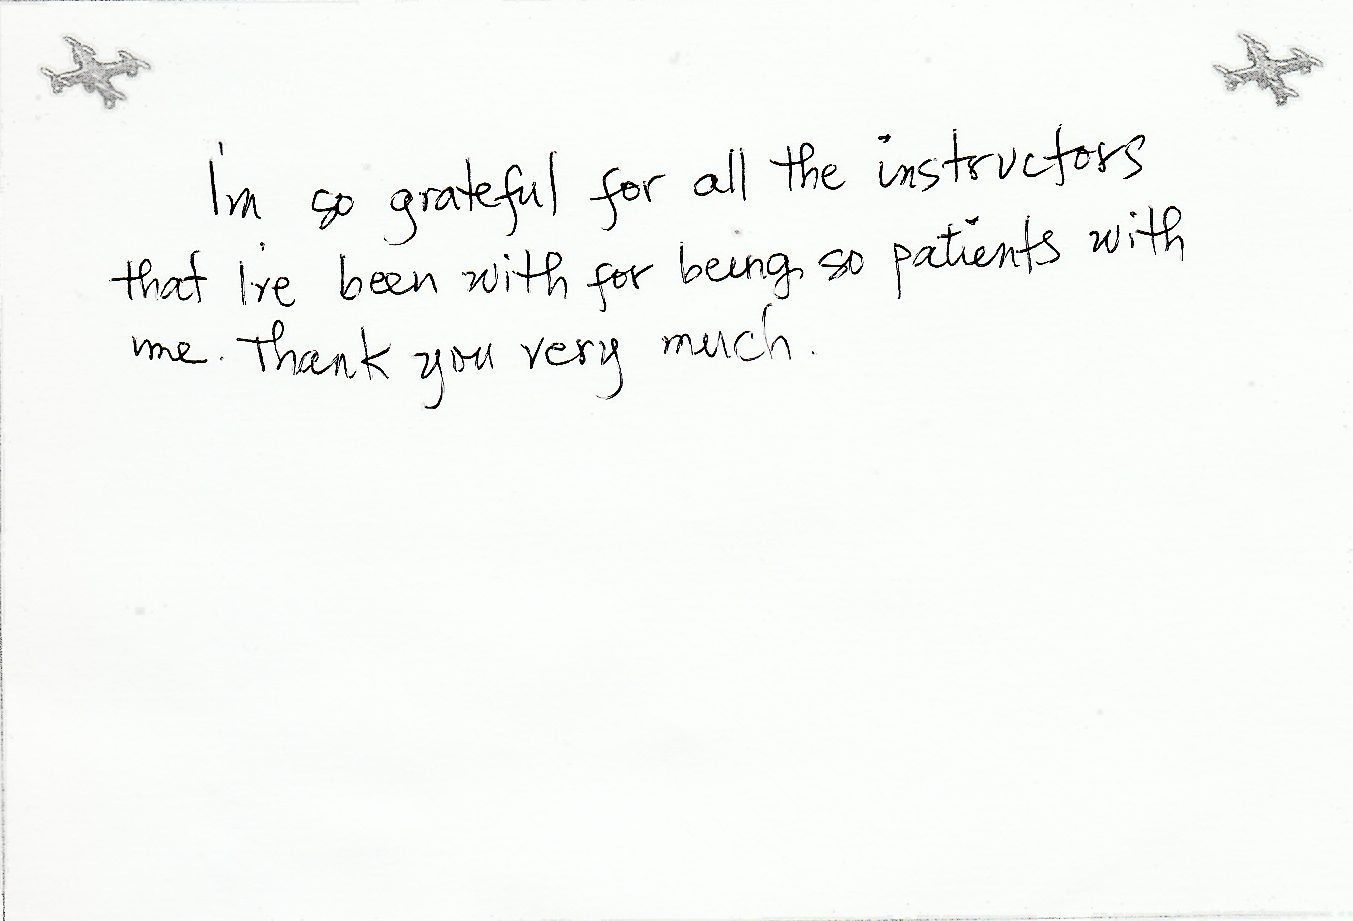 I'm so grateful for all the instructors
that I've been with for being so patients with
me. Thank you very much.